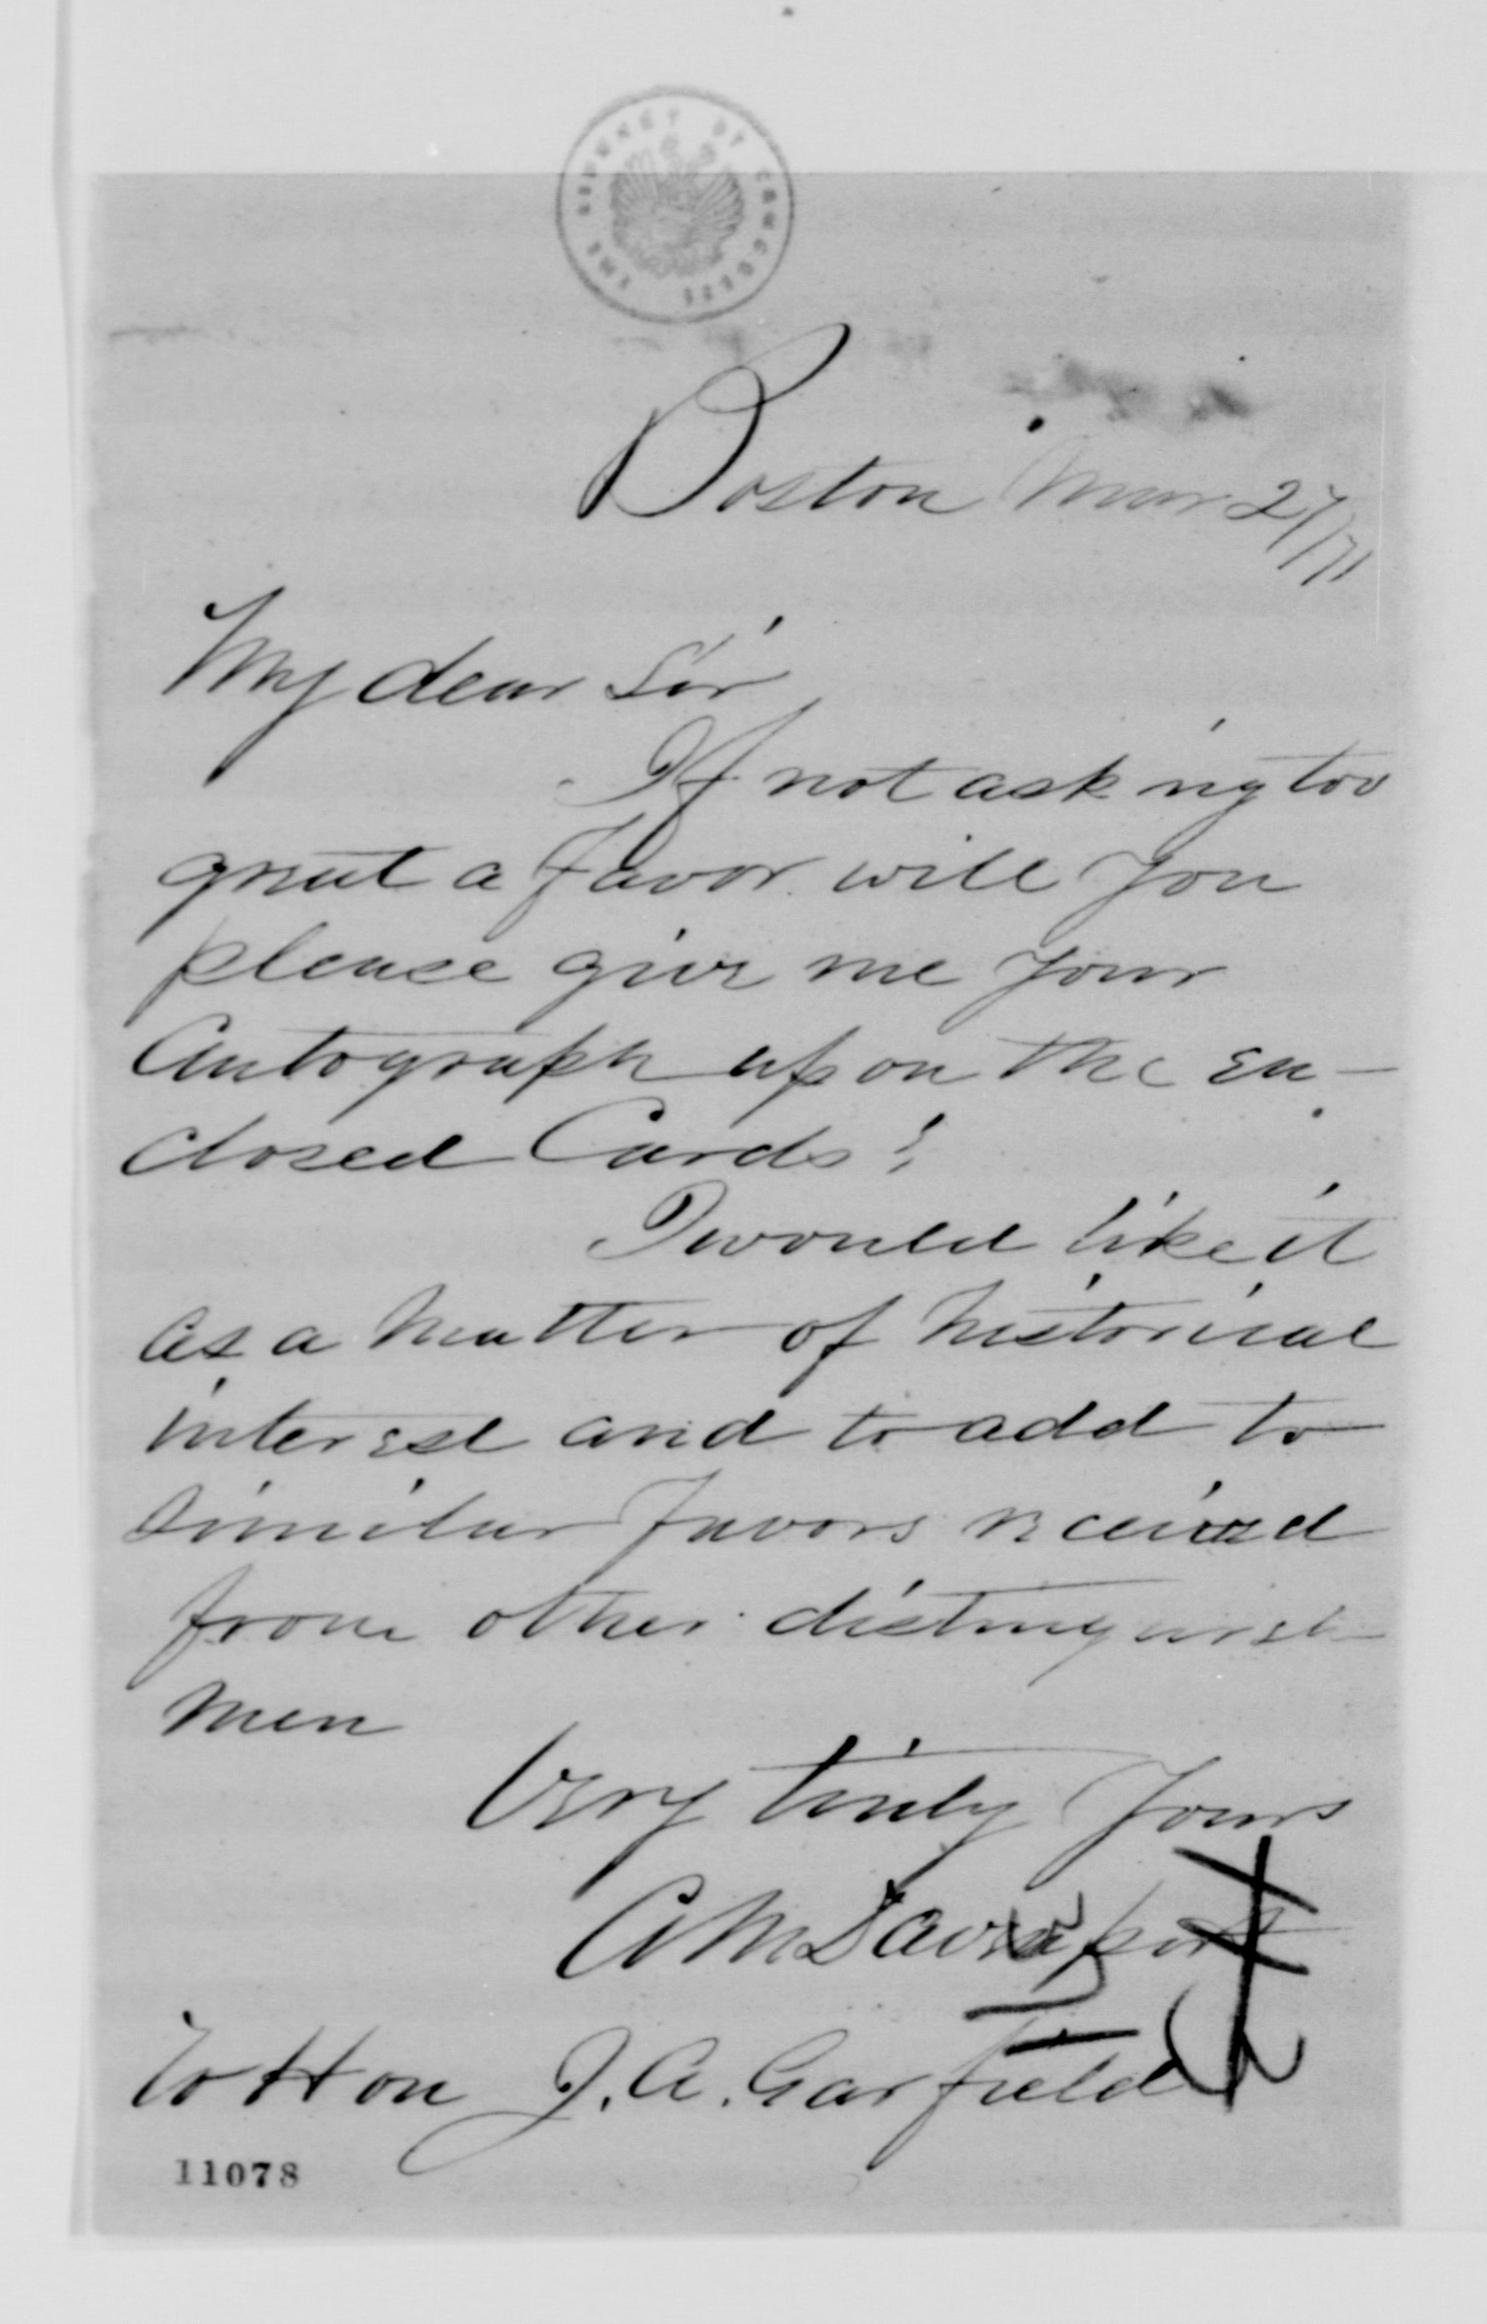 THE LIBRARY OF CONGRESS
Boston Mar 27/71
My dear Sir
If not asking too
great a favor will you
please give me your
Autograph upon the en-
closed Cards?
I would like it
as a matter of historical
interest and to add to
similar favors received
from other distinguish
men
Very truly yours
A M Davenport
To Hon J. A. Garfield
11078